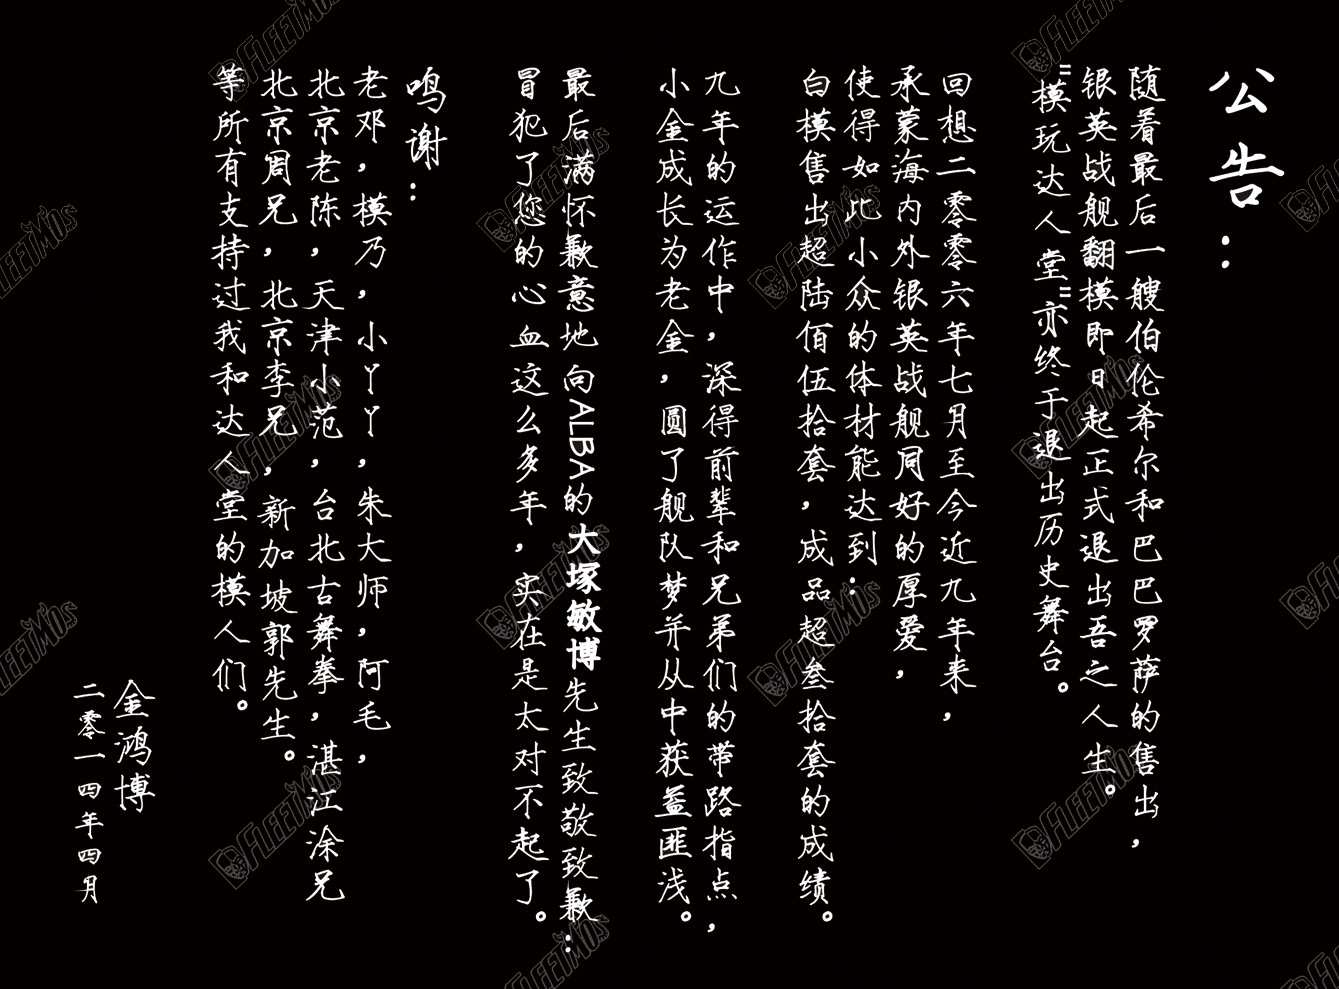 公告：
随着最后一艘伯伦希尔和巴巴罗萨的售出，
银英战舰翻模即日起正式退出吾之人生。
"模玩达人堂"亦终于退出历史舞台。
回想二零零六年七月至今近九年来，
承蒙海内外银英战舰同好的厚爱，
使得如此小众的体材能达到：
白模售出超陆佰伍拾套，成品超叁拾套的成绩。
九年的运作中，深得前辈和兄弟们的带路指点，
小金成长为老金，圆了舰队梦并从中获益匪浅。
最后满怀歉意地向ALBA的大塚敏博先生致敬致歉：
冒犯了您的心血这么多年，实在是太对不起了。
鸣谢：
老邓，模乃，小丫丫，朱大师，阿毛，
北京老陈，天津小范，台北古舞拳，湛江涂兄
北京周兄，北京李兄，新加坡郭先生。
等所有支持过我和达人堂的模人们。
金鸿博
二零一四年四月
FLEETMOS